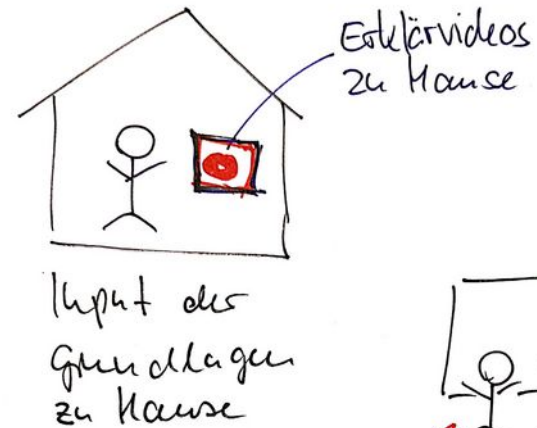 Erklärvideos
zu Hause
Input der
Grundlagen
zu Hause